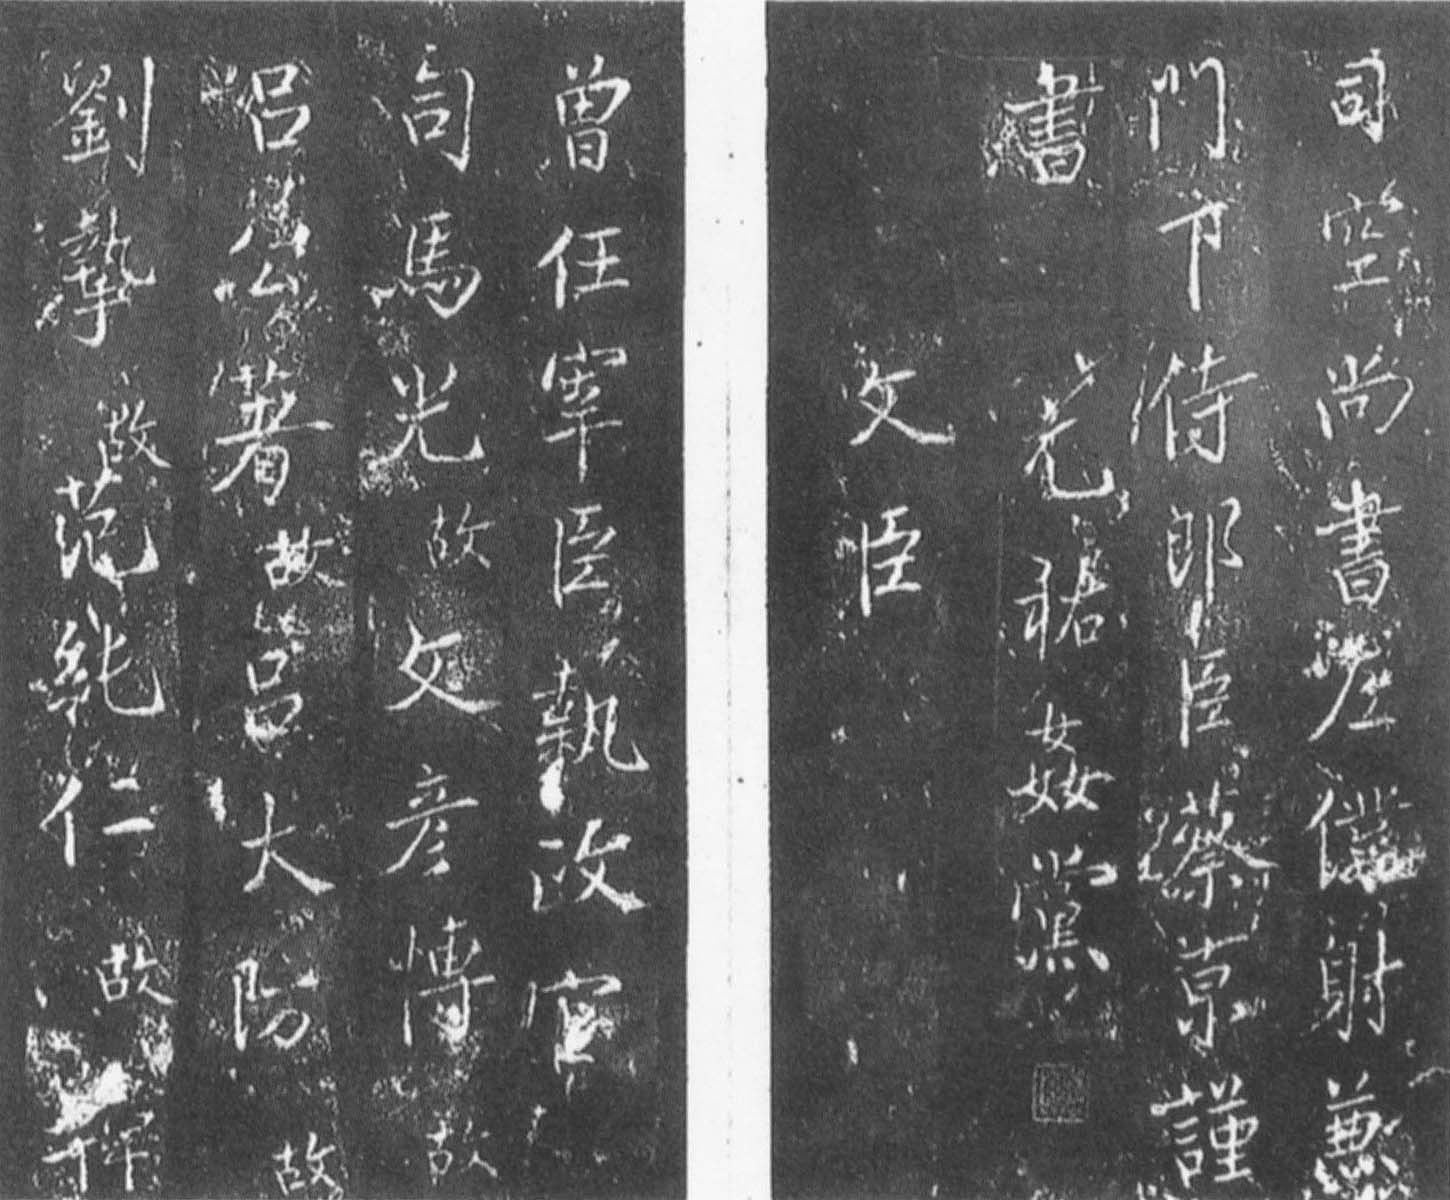 司空尚書左僕射兼
門下侍郎臣蔡京謹
書 元祐姦黨
文臣
曾任宰臣執政官
司馬光故 文彥博故
呂公著故 呂大防故
劉摯故 范純仁故